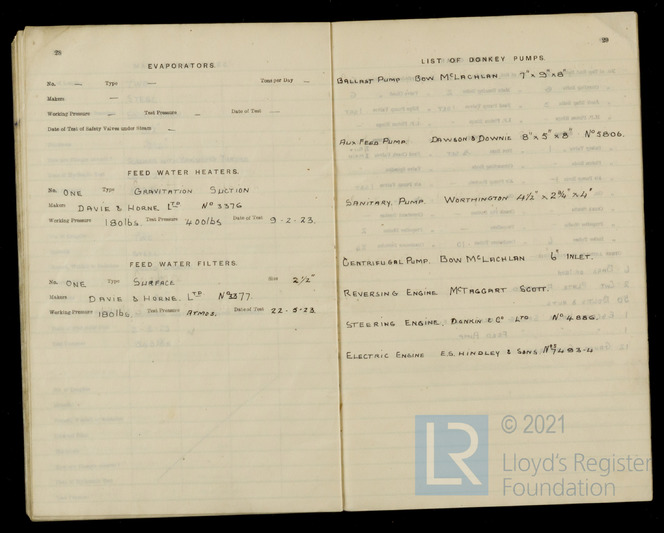 28
EVAPORATORS.
No. — Type — Tons per Day —
Makers —
Working Pressure — Test Pressure — Date of Test —
Date of Test of Safety Valves under Steam —
FEED WATER HEATERS.
No. ONE Type GRAVITATION SUCTION
Makers DAVIE & HORNE LTD No 3376
Working Pressure 180lbs. Test Pressure 400lbs Date of Test 9-2-23.
FEED WATER FILTERS.
No. ONE Type SURFACE Size 2½"
Makers DAVIE & HORNE. LTD No2377.
Working Pressure 180lbs. Test Pressure ATMOS. Date of Test 22-5-23
29
LIST OF DONKEY PUMPS.
BALLAST PUMP BOW MCLACHLAN 7" x 9" x 8"
AUX FEED PUMP. DAWSON & DOWNIE 8" x 5" x 8" No 5806.
SANITARY. PUMP. WORTHINGTON 4½" x 2¾" x 4"
CENTRIFUGAL PUMP. BOW MCLACHLAN 6" INLET.
REVERSING ENGINE MCTAGGART SCOTT.
STEERING ENGINE DONKIN & Co LTD. No 4886.
ELECTRIC ENGINE E.G. HINDLEY & SONS Nos 7493-4
LR
© 2021
Lloyd's Register
Foundation